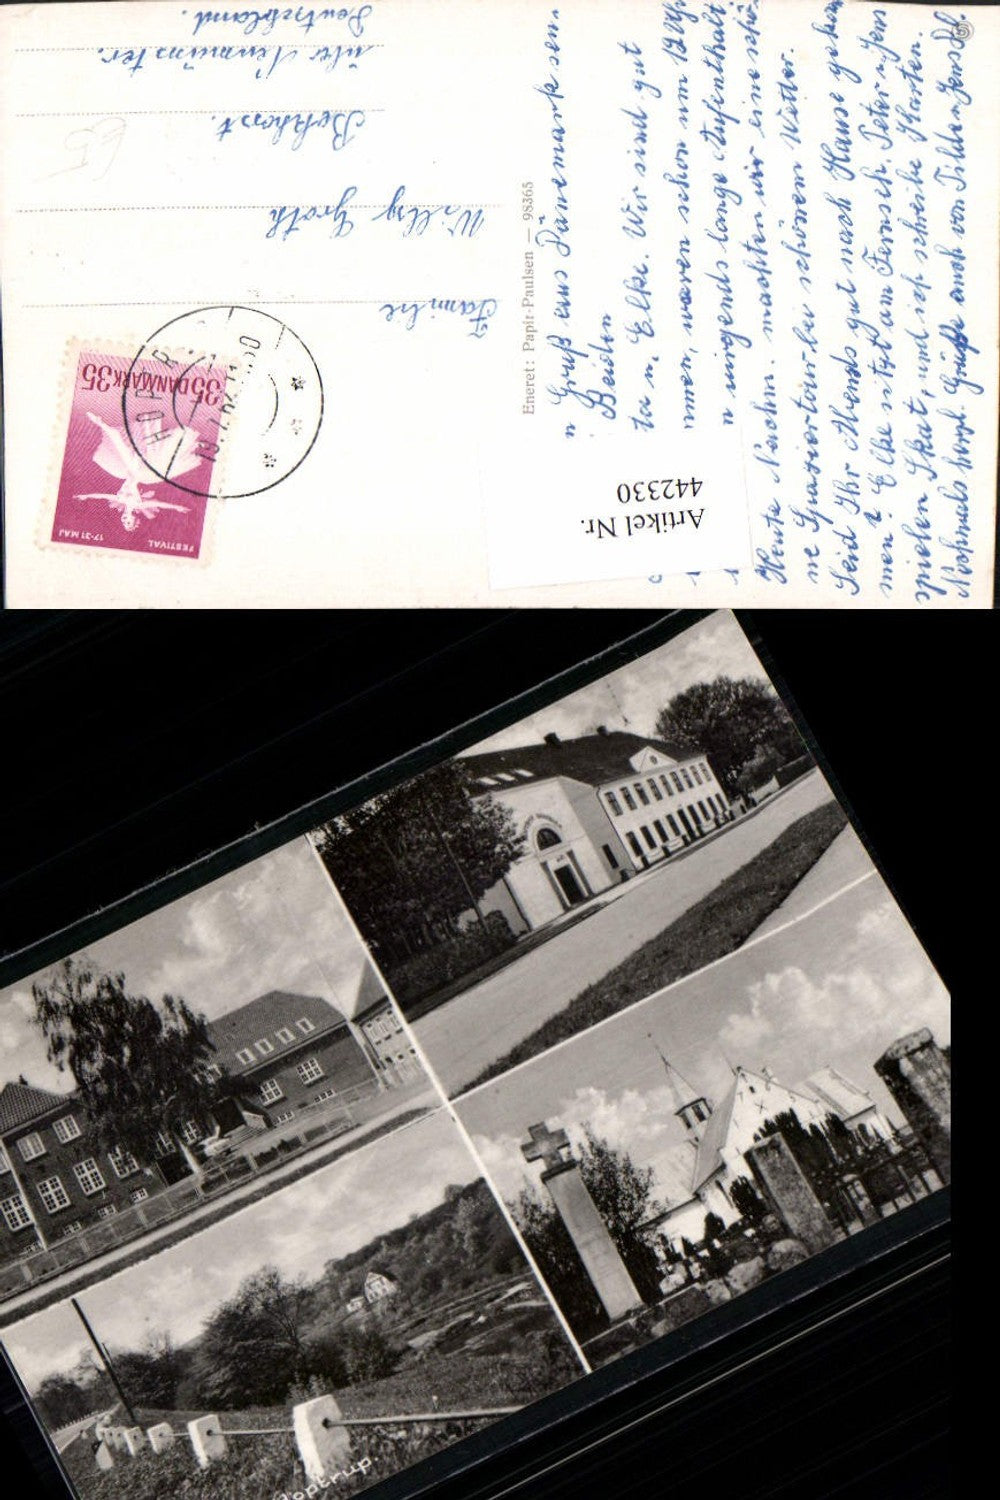 n Gruß aus Dänemark sen-
Beiden
ta u. Elke. Wir sind gut
mmen, waren schon um 12 Uhr
n nirgends lange Aufenthalt.
Heute Nachm. machten wir eine schö-
ne Spaziertour bei schönem Wetter.
Seid Ihr Abends gut nach Hause gekom
men? Elke sitzt am Fernseh. Peter u. Jens
spielen Skat, und ich schreibe Karten.
Nochmals herzl. Grüße auch von Jens
Familie
Willy Groth
Bokhorst.
über Neumünster.
Deutschland.
Eneret: Papir-Paulsen — 98365
Artikel Nr.
442330
35 DANMARK 35
FESTIVAL
17-31 MAJ
HOPTRUP
optrup.